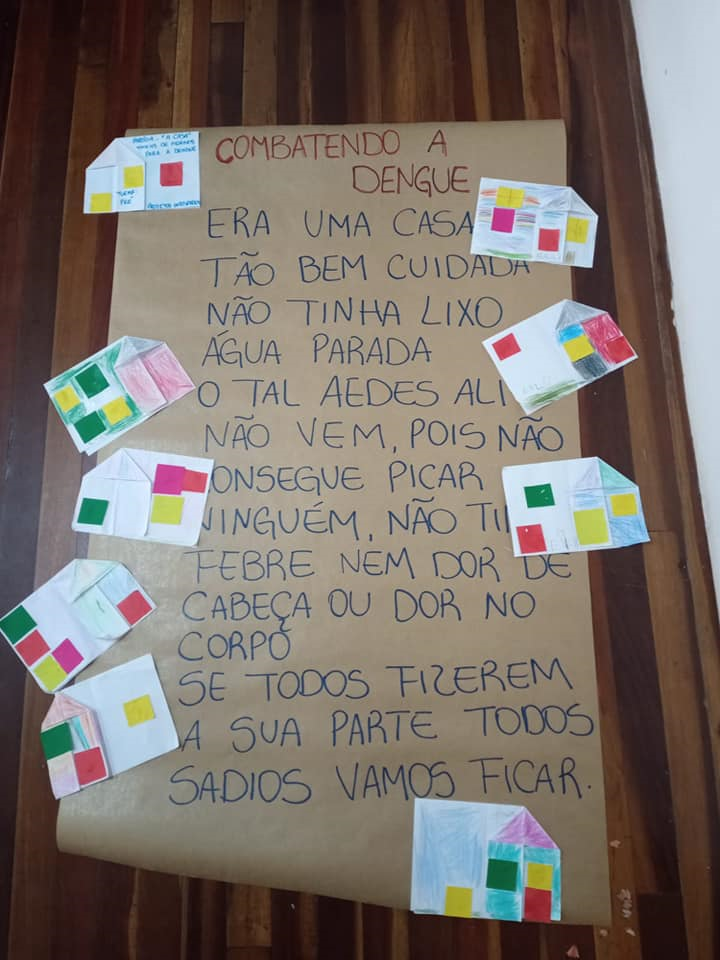 PARÓDIA - "A CASA"
PARA A DENGUE
TURMA
PRÉ
COMBATENDO A
DENGUE
ERA UMA CASA
TÃO BEM CUIDADA
NÃO TINHA LIXO
ÁGUA PARADA
O TAL AEDES ALI
NÃO VEM, POIS NÃO
CONSEGUE PICAR
NINGUÉM, NÃO
FEBRE NEM DOR DE
CABEÇA OU DOR NO
CORPO
SE TODOS FIZEREM
A SUA PARTE TODOS
SADIOS VAMOS FICAR.